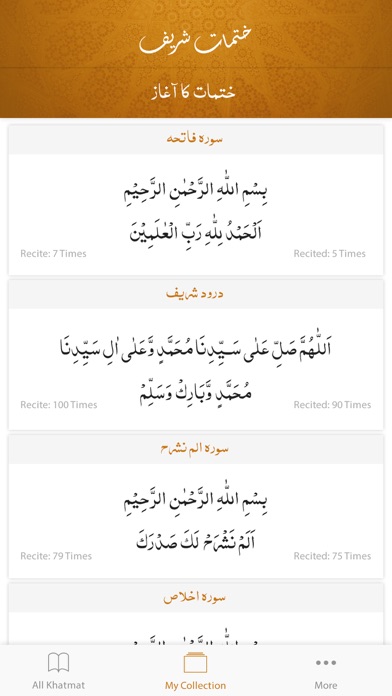 ختمات شریف
ختمات کا آغاز
سورہ فاتحہ
بِسْمِ اللّٰهِ الرَّحْمٰنِ الرَّحِيْمِ
اَلْحَمْدُ لِلّٰهِ رَبِّ الْعٰلَمِيْنَ
Recite: 7 Times
Recited: 5 Times
درود شریف
اَللّٰهُمَّ صَلِّ عَلٰى سَيِّدِنَا مُحَمَّدٍ وَّعَلٰى اٰلِ سَيِّدِنَا
مُحَمَّدٍ وَّبَارِكْ وَسَلِّمْ
Recite: 100 Times
Recited: 90 Times
سورہ الم نشرح
بِسْمِ اللّٰهِ الرَّحْمٰنِ الرَّحِيْمِ
اَلَمْ نَشْرَحْ لَكَ صَدْرَكَ
Recite: 79 Times
Recited: 75 Times
سورہ اخلاص
بِسْمِ اللّٰهِ الرَّحْمٰنِ الرَّحِيْمِ
All Khatmat
My Collection
More